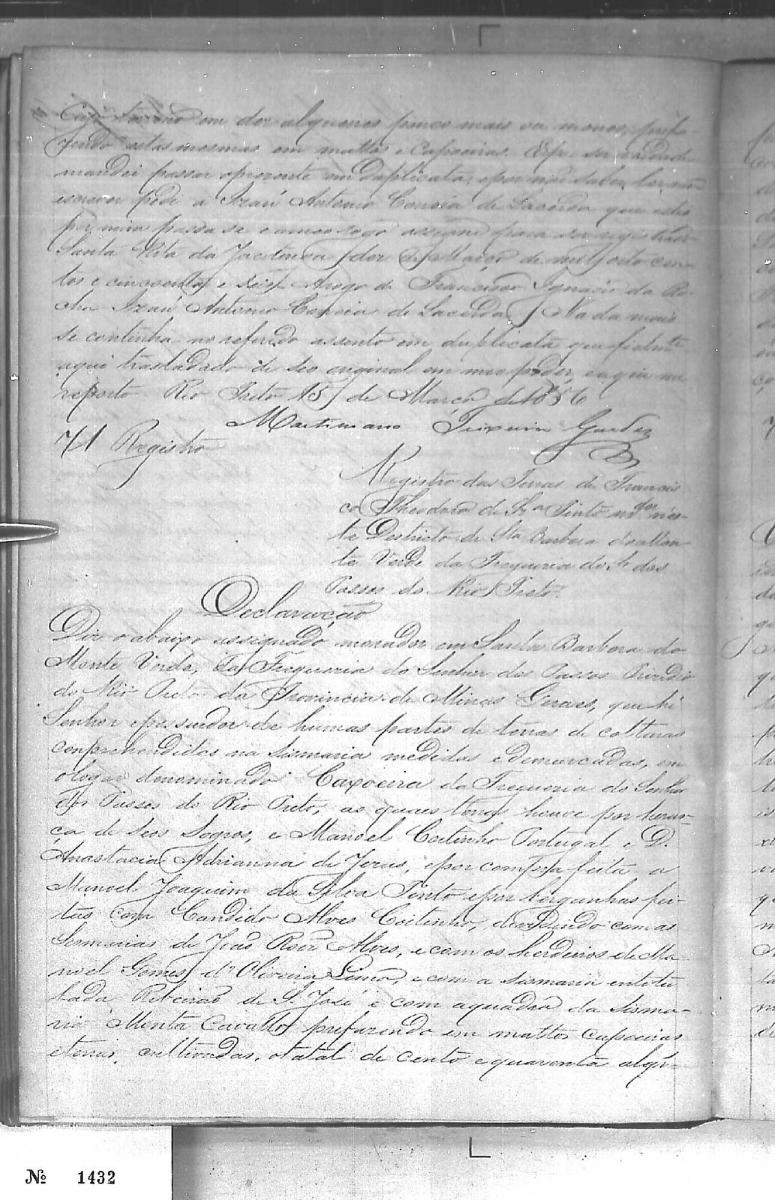 Cujo terreno em dor alqueres pouco mais ou menos, prefa-
sendo estas mesmas em mattos e Capoeiras. E pr. ser verdade
mandei passar o prezente em duplicata, e por não saber ler nem
escrever pedi a Izaú Antonio Correia de Lacerda que este
por mim passa se e a meo rogo assigne para ser registrado
Santa Rita da Jacutinga dor de Março de mil e oito cen-
tos e cincoenta e seis. Arogo de Francisco Ignacio da Ro-
cha Izaú Antonio Correia de Lacerda / Nada mais
se continha no referido assento em duplicata que fielmte
aqui trasladado do seo original em meo poder, eaqui me
reporto Rio Preto 15 de Março de 1856
Martiniano Teixeira Guedes
71 Registro
Registro das Terras de Francis
co Theodoro de Sza Pinto mdor nes-
te Destricto de Sta Barbara do Mon-
te Verde da Freguezia do Sr dos
Passos do Rio Preto.
Declaração
Diz o abaixo assignado morador em Santa Barbara do
Monte Verde, da Freguezia do Senhor dos Passos
do Rio Preto da Provincia de Minas Geraes, que hé
Senhor e possuidor de humas partes de terras de culturas
comprehendidas na sismaria medidas e demarcadas, em
o logar denominado Caxoeira da Freguezia do Senhor
dos Passos do Rio Preto, as quaes terras houve por heran-
ça de seos Sogros, e Manoel Coitinho Portugal e D.
Anastacia Adrianna de Jezus, e por compra feita a
Manoel Joaquim da Silva Pinto e por barganhas fei-
tas com Candido Alves Coitinho, devidindo com as
Sesmarias de João Alves, e com os herdeiros de Ma-
noel Gomes d'Oliveira Lima, e com a sismaria entetu-
lada Ribeirão de S. Jose e com aquadra da sisma-
ria Monta Cavallo, prefazendo em mattos capoeiras
e terras cultivadas, o total de cento e quarenta alqu-
№ 1432